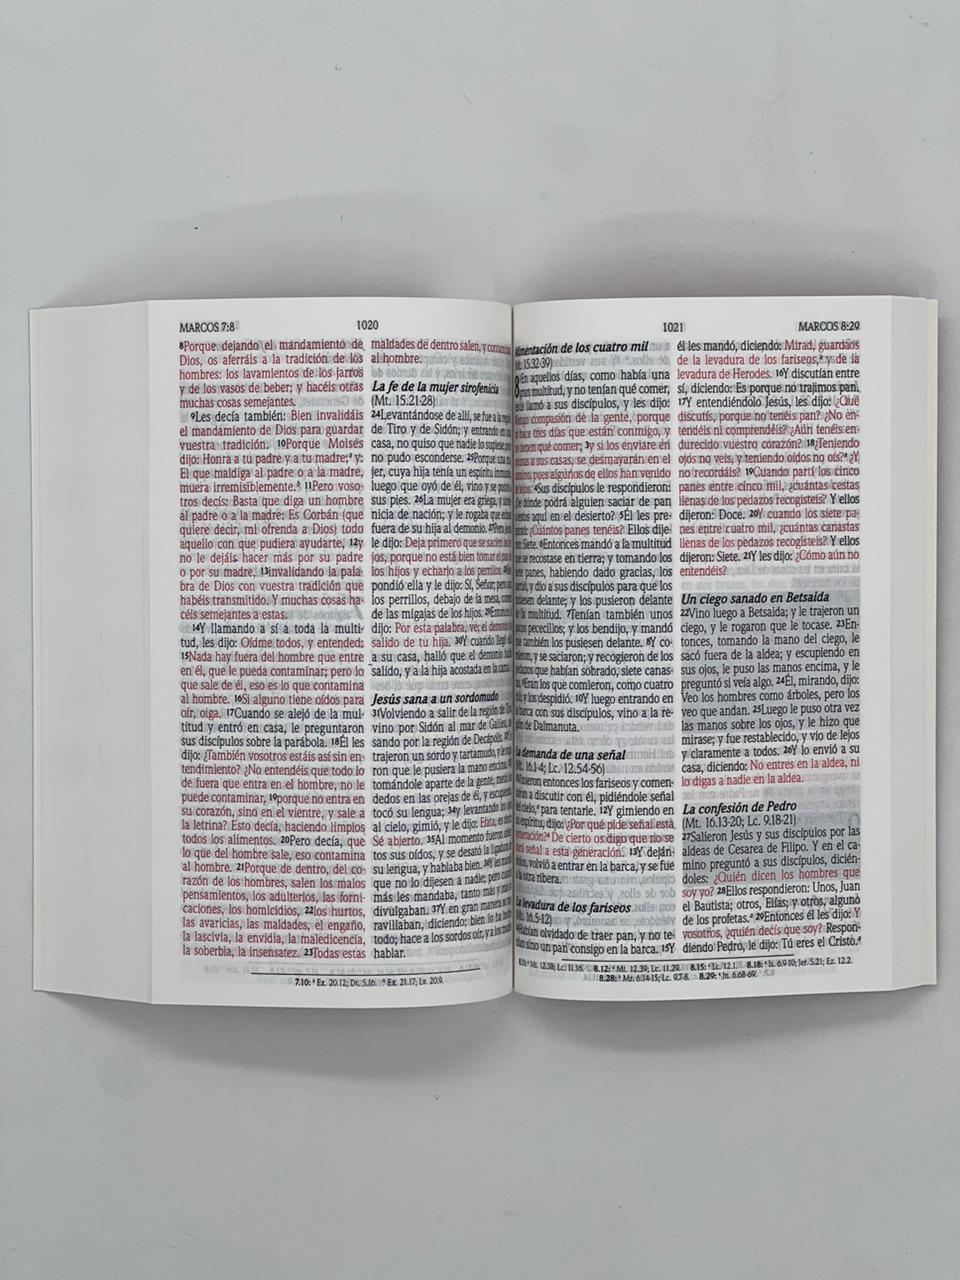 MARCOS 7:8
1020
8Porque dejando el mandamiento de
Dios, os aferráis a la tradición de los
hombres: los lavamientos de los jarros
y de los vasos de beber; y hacéis otras
muchas cosas semejantes.
9Les decía también: Bien invalidáis
el mandamiento de Dios para guardar
vuestra tradición. 10Porque Moisés
dijo: Honra a tu padre y a tu madre;a y:
El que maldiga al padre o a la madre,
muera irremisiblemente.b 11Pero voso-
tros decís: Basta que diga un hombre
al padre o a la madre: Es Corbán (que
quiere decir, mi ofrenda a Dios) todo
aquello con que pudiera ayudarte, 12y
no le dejáis hacer más por su padre
o por su madre, 13invalidando la pala-
bra de Dios con vuestra tradición que
habéis transmitido. Y muchas cosas ha-
céis semejantes a estas.
14Y llamando a sí a toda la multi-
tud, les dijo: Oídme todos, y entended:
15Nada hay fuera del hombre que entre
en él, que le pueda contaminar; pero lo
que sale de él, eso es lo que contamina
al hombre. 16Si alguno tiene oídos para
oír, oiga. 17Cuando se alejó de la mul-
titud y entró en casa, le preguntaron
sus discípulos sobre la parábola. 18Él les
dijo: ¿También vosotros estáis así sin en-
tendimiento? ¿No entendéis que todo lo
de fuera que entra en el hombre, no le
puede contaminar, 19porque no entra en
su corazón, sino en el vientre, y sale a
la letrina? Esto decía, haciendo limpios
todos los alimentos. 20Pero decía, que
lo que del hombre sale, eso contamina
al hombre. 21Porque de dentro, del co-
razón de los hombres, salen los malos
pensamientos, los adulterios, las forni-
caciones, los homicidios, 22los hurtos,
las avaricias, las maldades, el engaño,
la lascivia, la envidia, la maledicencia,
la soberbia, la insensatez. 23Todas estas
maldades de dentro salen, y contaminan
al hombre.
La fe de la mujer sirofenicia
(Mt. 15.21-28)
24Levantándose de allí, se fue a la región
de Tiro y de Sidón; y entrando en una
casa, no quiso que nadie lo supiese; pero
no pudo esconderse. 25Porque una mu-
jer, cuya hija tenía un espíritu inmundo,
luego que oyó de él, vino y se postró a
sus pies. 26La mujer era griega, y sirofe-
nicia de nación; y le rogaba que echase
fuera de su hija al demonio. 27Pero Jesús
le dijo: Deja primero que se sacien los hi-
jos, porque no está bien tomar el pan de
los hijos y echarlo a los perrillos. 28Res-
pondió ella y le dijo: Sí, Señor; pero aun
los perrillos, debajo de la mesa, comen
de las migajas de los hijos. 29Entonces le
dijo: Por esta palabra, ve; el demonio ha
salido de tu hija. 30Y cuando llegó ella
a su casa, halló que el demonio había
salido, y a la hija acostada en la cama.
Jesús sana a un sordomudo
31Volviendo a salir de la región de Tiro,
vino por Sidón al mar de Galilea, pa-
sando por la región de Decápolis. 32Y le
trajeron un sordo y tartamudo, y le roga-
ron que le pusiera la mano encima. 33Y
tomándole aparte de la gente, metió los
dedos en las orejas de él, y escupiendo,
tocó su lengua; 34y levantando los ojos
al cielo, gimió, y le dijo: Efata, es decir:
Sé abierto. 35Al momento fueron abier-
tos sus oídos, y se desató la ligadura de
su lengua, y hablaba bien. 36Y les mandó
que no lo dijesen a nadie; pero cuanto
más les mandaba, tanto más y más lo
divulgaban. 37Y en gran manera se ma-
ravillaban, diciendo: bien lo ha hecho
todo; hace a los sordos oír, y a los mudos
hablar.
7.10: a Ex. 20.12; Dt. 5.16. b Ex. 21.17; Lv. 20.9.
1021
MARCOS 8:29
Alimentación de los cuatro mil
(Mt. 15.32-39)
8En aquellos días, como había una
gran multitud, y no tenían qué comer,
Jesús llamó a sus discípulos, y les dijo:
2Tengo compasión de la gente, porque
ya hace tres días que están conmigo, y
no tienen qué comer; 3y si los enviare en
ayunas a sus casas, se desmayarán en el
camino, pues algunos de ellos han venido
de lejos. 4Sus discípulos le respondieron:
¿De dónde podrá alguien saciar de pan
a estos aquí en el desierto? 5Él les pre-
guntó: ¿Cuántos panes tenéis? Ellos dije-
ron: Siete. 6Entonces mandó a la multitud
que se recostase en tierra; y tomando los
siete panes, habiendo dado gracias, los
partió, y dio a sus discípulos para que los
pusiesen delante; y los pusieron delante
de la multitud. 7Tenían también unos
pocos pececillos; y los bendijo, y mandó
que también los pusiesen delante. 8Y co-
mieron, y se saciaron; y recogieron de los
pedazos que habían sobrado, siete canas-
tas. 9Eran los que comieron, como cuatro
mil; y los despidió. 10Y luego entrando en
la barca con sus discípulos, vino a la re-
gión de Dalmanuta.
La demanda de una señal
(Mt. 16.1-4; Lc. 12.54-56)
11Vinieron entonces los fariseos y comen-
zaron a discutir con él, pidiéndole señal
del cielo,a para tentarle. 12Y gimiendo en
su espíritu, dijo: ¿Por qué pide señal esta
generación?b De cierto os digo que no se
dará señal a esta generación. 13Y deján-
dolos, volvió a entrar en la barca, y se fue
a la otra ribera.
La levadura de los fariseos
(Mt. 16.5-12)
14Habían olvidado de traer pan, y no te-
nían sino un pan consigo en la barca. 15Y
él les mandó, diciendo: Mirad, guardaos
de la levadura de los fariseos,c y de la
levadura de Herodes. 16Y discutían entre
sí, diciendo: Es porque no trajimos pan.
17Y entendiéndolo Jesús, les dijo: ¿Qué
discutís, porque no tenéis pan? ¿No en-
tendéis ni comprendéis? ¿Aún tenéis en-
durecido vuestro corazón? 18¿Teniendo
ojos no veis, y teniendo oídos no oís?d ¿Y
no recordáis? 19Cuando partí los cinco
panes entre cinco mil, ¿cuántas cestas
llenas de los pedazos recogisteis? Y ellos
dijeron: Doce. 20Y cuando los siete pa-
nes entre cuatro mil, ¿cuántas canastas
llenas de los pedazos recogisteis? Y ellos
dijeron: Siete. 21Y les dijo: ¿Cómo aún no
entendéis?
Un ciego sanado en Betsaida
22Vino luego a Betsaida; y le trajeron un
ciego, y le rogaron que le tocase. 23En-
tonces, tomando la mano del ciego, le
sacó fuera de la aldea; y escupiendo en
sus ojos, le puso las manos encima, y le
preguntó si veía algo. 24Él, mirando, dijo:
Veo los hombres como árboles, pero los
veo que andan. 25Luego le puso otra vez
las manos sobre los ojos, y le hizo que
mirase; y fue restablecido, y vio de lejos
y claramente a todos. 26Y lo envió a su
casa, diciendo: No entres en la aldea, ni
lo digas a nadie en la aldea.
La confesión de Pedro
(Mt. 16.13-20; Lc. 9.18-21)
27Salieron Jesús y sus discípulos por las
aldeas de Cesarea de Filipo. Y en el ca-
mino preguntó a sus discípulos, dicién-
doles: ¿Quién dicen los hombres que
soy yo? 28Ellos respondieron: Unos, Juan
el Bautista; otros, Elías; y otros, alguno
de los profetas.e 29Entonces él les dijo: Y
vosotros, ¿quién decís que soy? Respon-
diendo Pedro, le dijo: Tú eres el Cristo.f
8.11: a Mt. 12.38; Lc. 11.16. 8.12: b Mt. 12.39; Lc. 11.29. 8.15: c Lc. 12.1. 8.18: d Is. 6.9-10; Jer. 5.21; Ez. 12.2.
8.28: e Mr. 6.14-15; Lc. 9.7-8. 8.29: f Jn. 6.68-69.